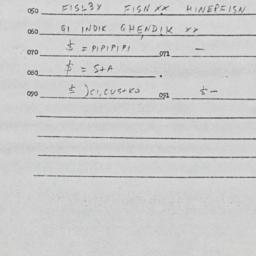 050 FISL3Y FISN XX HINEPFISN
060 GI INDIK GHENDIK XX
070 $ = PIPIPIPI 071 —
080 $ = S+A .
090 091 $ —